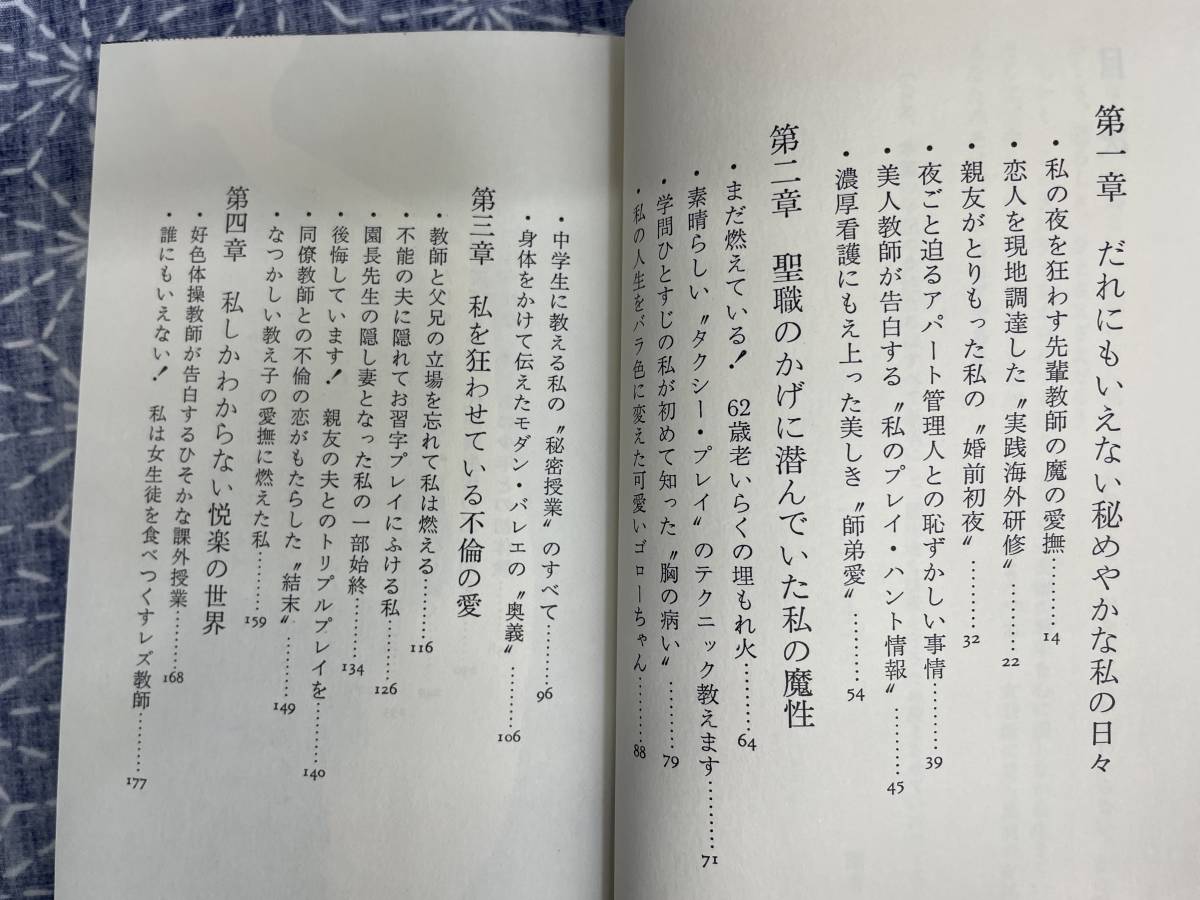 第一章 だれにもいえない秘めやかな私の日々
・私の夜を狂わす先輩教師の魔の愛撫………14
・恋人を現地調達した〝実践海外研修〟………22
・親友がとりもった私の〝婚前初夜〟………32
・夜ごと迫るアパート管理人との恥ずかしい事情………39
・美人教師が告白する〝私のプレイ・ハント情報〟………45
・濃厚看護にもえ上った美しき〝師弟愛〟………54
第二章 聖職のかげに潜んでいた私の魔性
・まだ燃えている! 62歳老いらくの埋もれ火………64
・素晴らしい〝タクシー・プレイ〟のテクニック教えます………71
・学問ひとすじの私が初めて知った〝胸の病い〟………79
・私の人生をバラ色に変えた可愛いゴローちゃん………88
・中学生に教える私の〝秘密授業〟のすべて………96
・身体をかけて伝えたモダン・バレエの〝奥義〟………106
第三章 私を狂わせている不倫の愛
・教師と父兄の立場を忘れて私は燃える………116
・不能の夫に隠れてお習字プレイにふける私………126
・園長先生の隠し妻となった私の一部始終………134
・後悔しています! 親友の夫とのトリプルプレイを………140
・同僚教師との不倫の恋がもたらした〝結末〟………149
・なつかしい教え子の愛撫に燃えた私………159
第四章 私しかわからない悦楽の世界
・好色体操教師が告白するひそかな課外授業………168
・誰にもいえない! 私は女生徒を食べつくすレズ教師………177